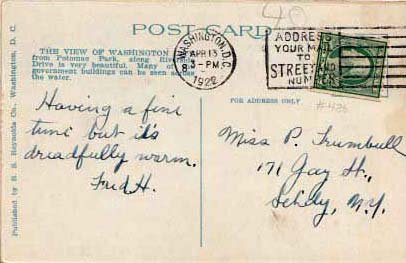 POST CARD
THE VIEW OF WASHINGTON
from Potomac Park, along Riverside
Drive is very beautiful. Many of
government buildings can be seen across
the water.
WASHINGTON, D.C.
APR 13
8-PM
1922
ADDRESS
YOUR MAIL
TO
STREET AND
NUMBER
FOR ADDRESS ONLY
Having a fine
time but its
dreadfully warm.
Fred H.
Miss P. Trumbull
171 Jay St.,
Schdy, N.Y.
Published by B. S. Reynolds Co., Washington, D. C.